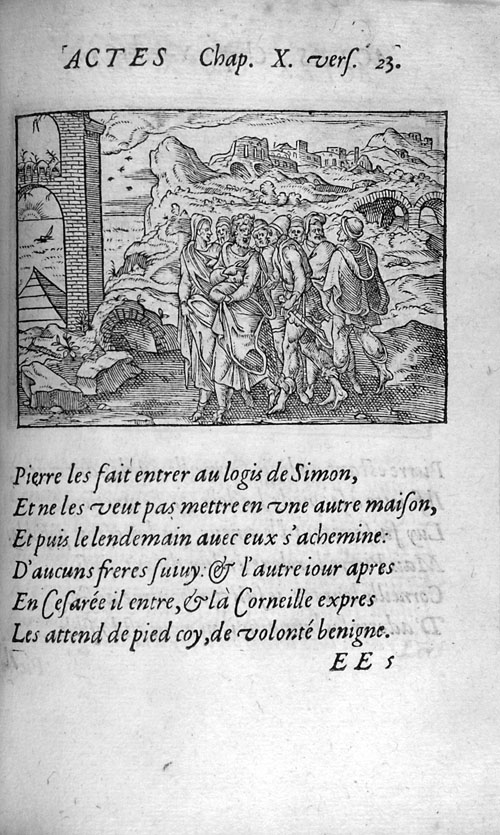 ACTES Chap. X. verſ. 23.
Pierre les fait entrer au logis de Simon,
Et ne les veut pas mettre en vne autre maiſon,
Et puis le lendemain auec eux s'achemine:
D'aucuns freres ſuiuy: & l'autre iour apres
En Ceſarée il entre, & là Corneille expres
Les attend de pied coy, de volonté benigne.
EE 5